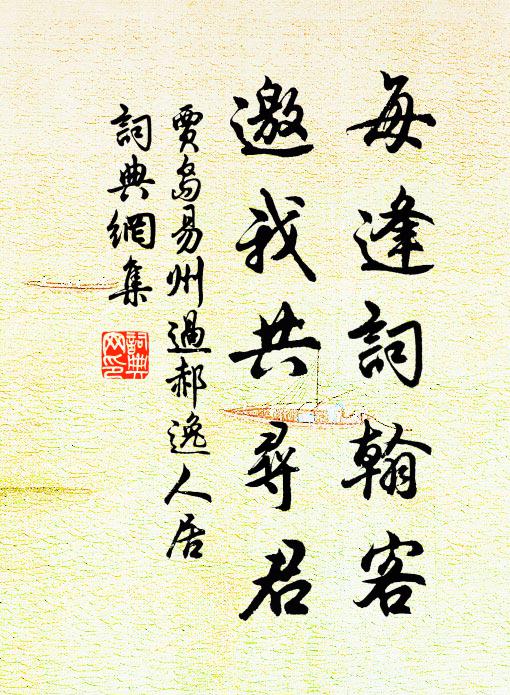 每逢詞翰客
邀我共尋君
賈島易州過郝逸人居
詞典網集
詞典
网印